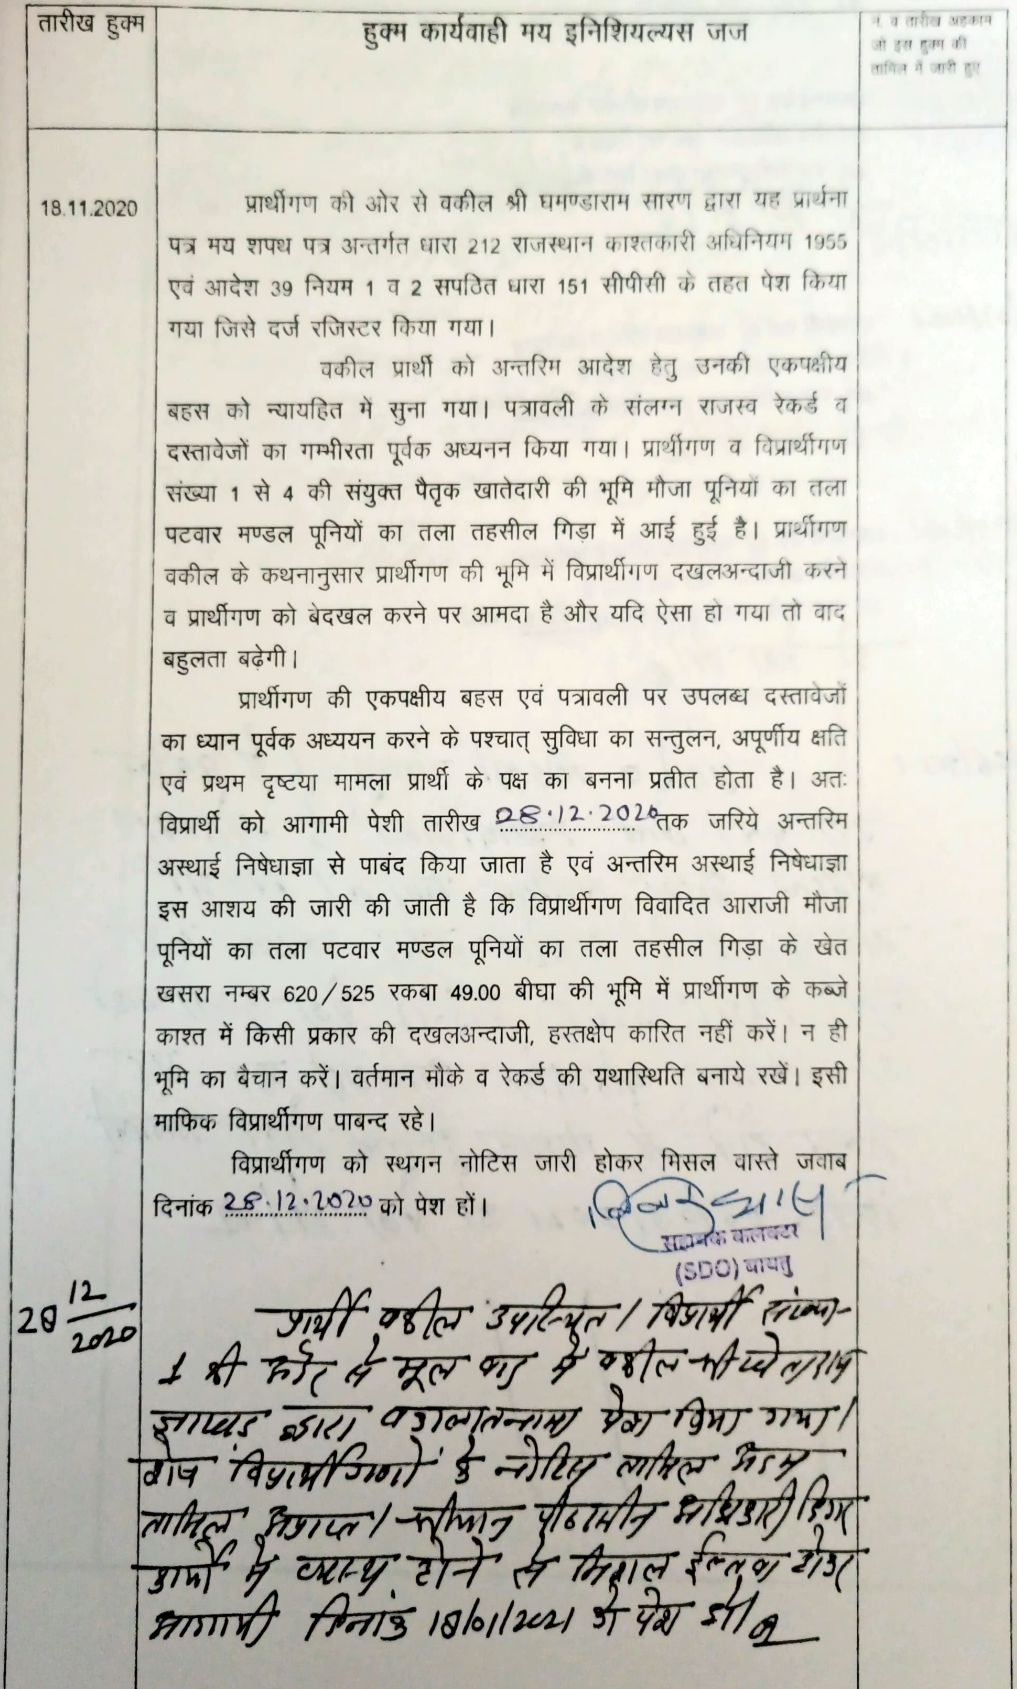 तारीख हुक्म
हुक्म कार्यवाही मय इनिशियल्यस जज
नं. व तारीख अहकाम
जो इस हुक्म की
तामिल में जारी हुए
18.11.2020
प्रार्थीगण की ओर से वकील श्री घमण्डाराम सारण द्वारा यह प्रार्थना
पत्र मय शपथ पत्र अन्तर्गत धारा 212 राजस्थान काश्तकारी अधिनियम 1955
एवं आदेश 39 नियम 1 व 2 सपठित धारा 151 सीपीसी के तहत पेश किया
गया जिसे दर्ज रजिस्टर किया गया।
वकील प्रार्थी को अन्तरिम आदेश हेतु उनकी एकपक्षीय
बहस को न्यायहित में सुना गया। पत्रावली के संलग्न राजस्व रेकर्ड व
दस्तावेजों का गम्भीरता पूर्वक अध्यनन किया गया। प्रार्थीगण व विप्रार्थीगण
संख्या 1 से 4 की संयुक्त पैतृक खातेदारी की भूमि मौजा पूनियों का तला
पटवार मण्डल पूनियों का तला तहसील गिड़ा में आई हुई है। प्रार्थीगण
वकील के कथनानुसार प्रार्थीगण की भूमि में विप्रार्थीगण दखलअन्दाजी करने
व प्रार्थीगण को बेदखल करने पर आमदा है और यदि ऐसा हो गया तो वाद
बहुलता बढ़ेगी।
प्रार्थीगण की एकपक्षीय बहस एवं पत्रावली पर उपलब्ध दस्तावेजों
का ध्यान पूर्वक अध्ययन करने के पश्चात् सुविधा का सन्तुलन, अपूर्णीय क्षति
एवं प्रथम दृष्टया मामला प्रार्थी के पक्ष का बनना प्रतीत होता है। अतः
विप्रार्थी को आगामी पेशी तारीख 28.12.2020 तक जरिये अन्तरिम
अस्थाई निषेधाज्ञा से पाबंद किया जाता है एवं अन्तरिम अस्थाई निषेधाज्ञा
इस आशय की जारी की जाती है कि विप्रार्थीगण विवादित आराजी मौजा
पूनियों का तला पटवार मण्डल पूनियों का तला तहसील गिड़ा के खेत
खसरा नम्बर 620/525 रकबा 49.00 बीघा की भूमि में प्रार्थीगण के कब्जे
काश्त में किसी प्रकार की दखलअन्दाजी, हस्तक्षेप कारित नहीं करें। न ही
भूमि का बैचान करें। वर्तमान मौके व रेकर्ड की यथास्थिति बनाये रखें। इसी
माफिक विप्रार्थीगण पाबन्द रहे।
विप्रार्थीगण को स्थगन नोटिस जारी होकर मिसल वास्ते जवाब
दिनांक 28.12.2020 को पेश हों।
सहायक कलक्टर
(SDO) बायतु
28 12/2020
प्रार्थी वकील उपस्थित। विप्रार्थी संख्या-
1 की ओर से मूल वाद में वकील श्री
द्वारा वकालतनामा पेश किया गया।
शेष विप्रार्थीगणों के नोटिस तामिल अदम
तामिल अप्राप्त। श्रीमान पीठासीन अधिकारी दिगर
कार्यो में व्यस्थ होने से मिसल ईल्तवा होकर
आगामी दिनांक 18/01/2021 को पेश हो।